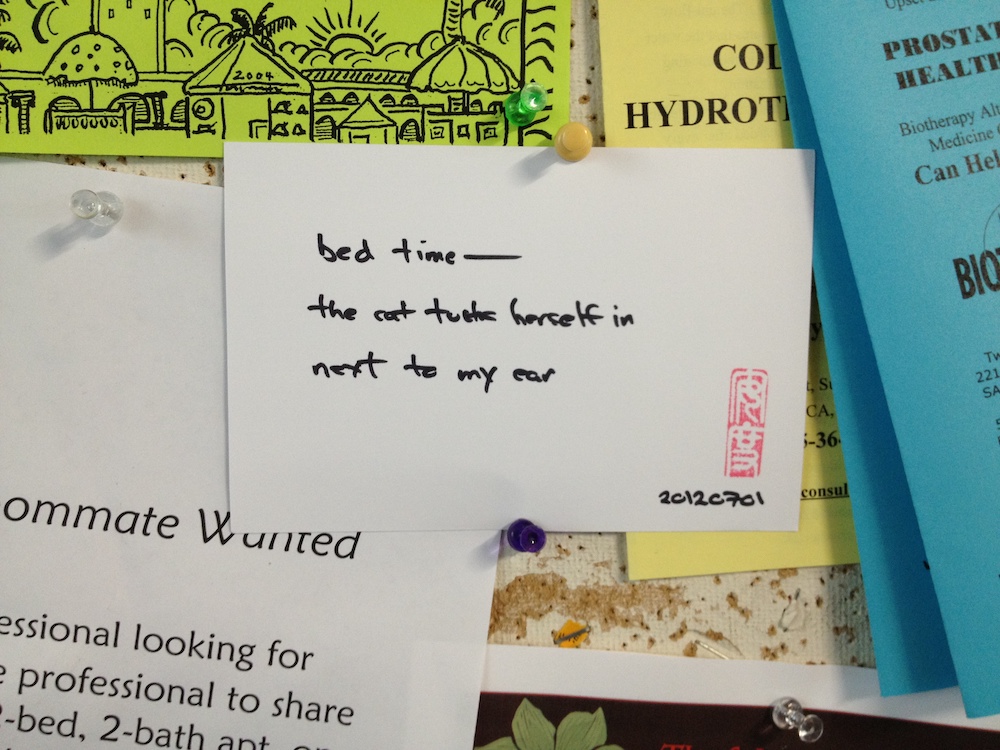 2004
COL
HYDROT
PROSTAT
HEALTH
Biotherapy Al
Medicine
Can Hel
BIO
Tw
221
SA
bed time—
the cat tucks herself in
next to my ear
20120701
CA,
5-36
consul
oommate Wanted
essional looking for
e professional to share
2-bed, 2-bath apt. on